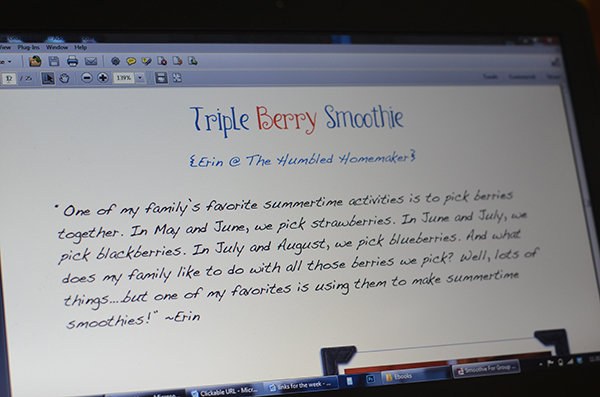 View Plug-Ins Window Help
12 / 25 139%
Tools Comment Share
Triple Berry Smoothie
{Erin @ The Humbled Homemaker}
"One of my family's favorite summertime activities is to pick berries
together. In May and June, we pick strawberries. In June and July, we
pick blackberries. In July and August, we pick blueberries. And what
does my family like to do with all those berries we pick? Well, lots of
things....but one of my favorites is using them to make summertime
smoothies!" ~Erin
Clickable URL - Micr... links for the week - ... Ebooks Smoothie For Group ...